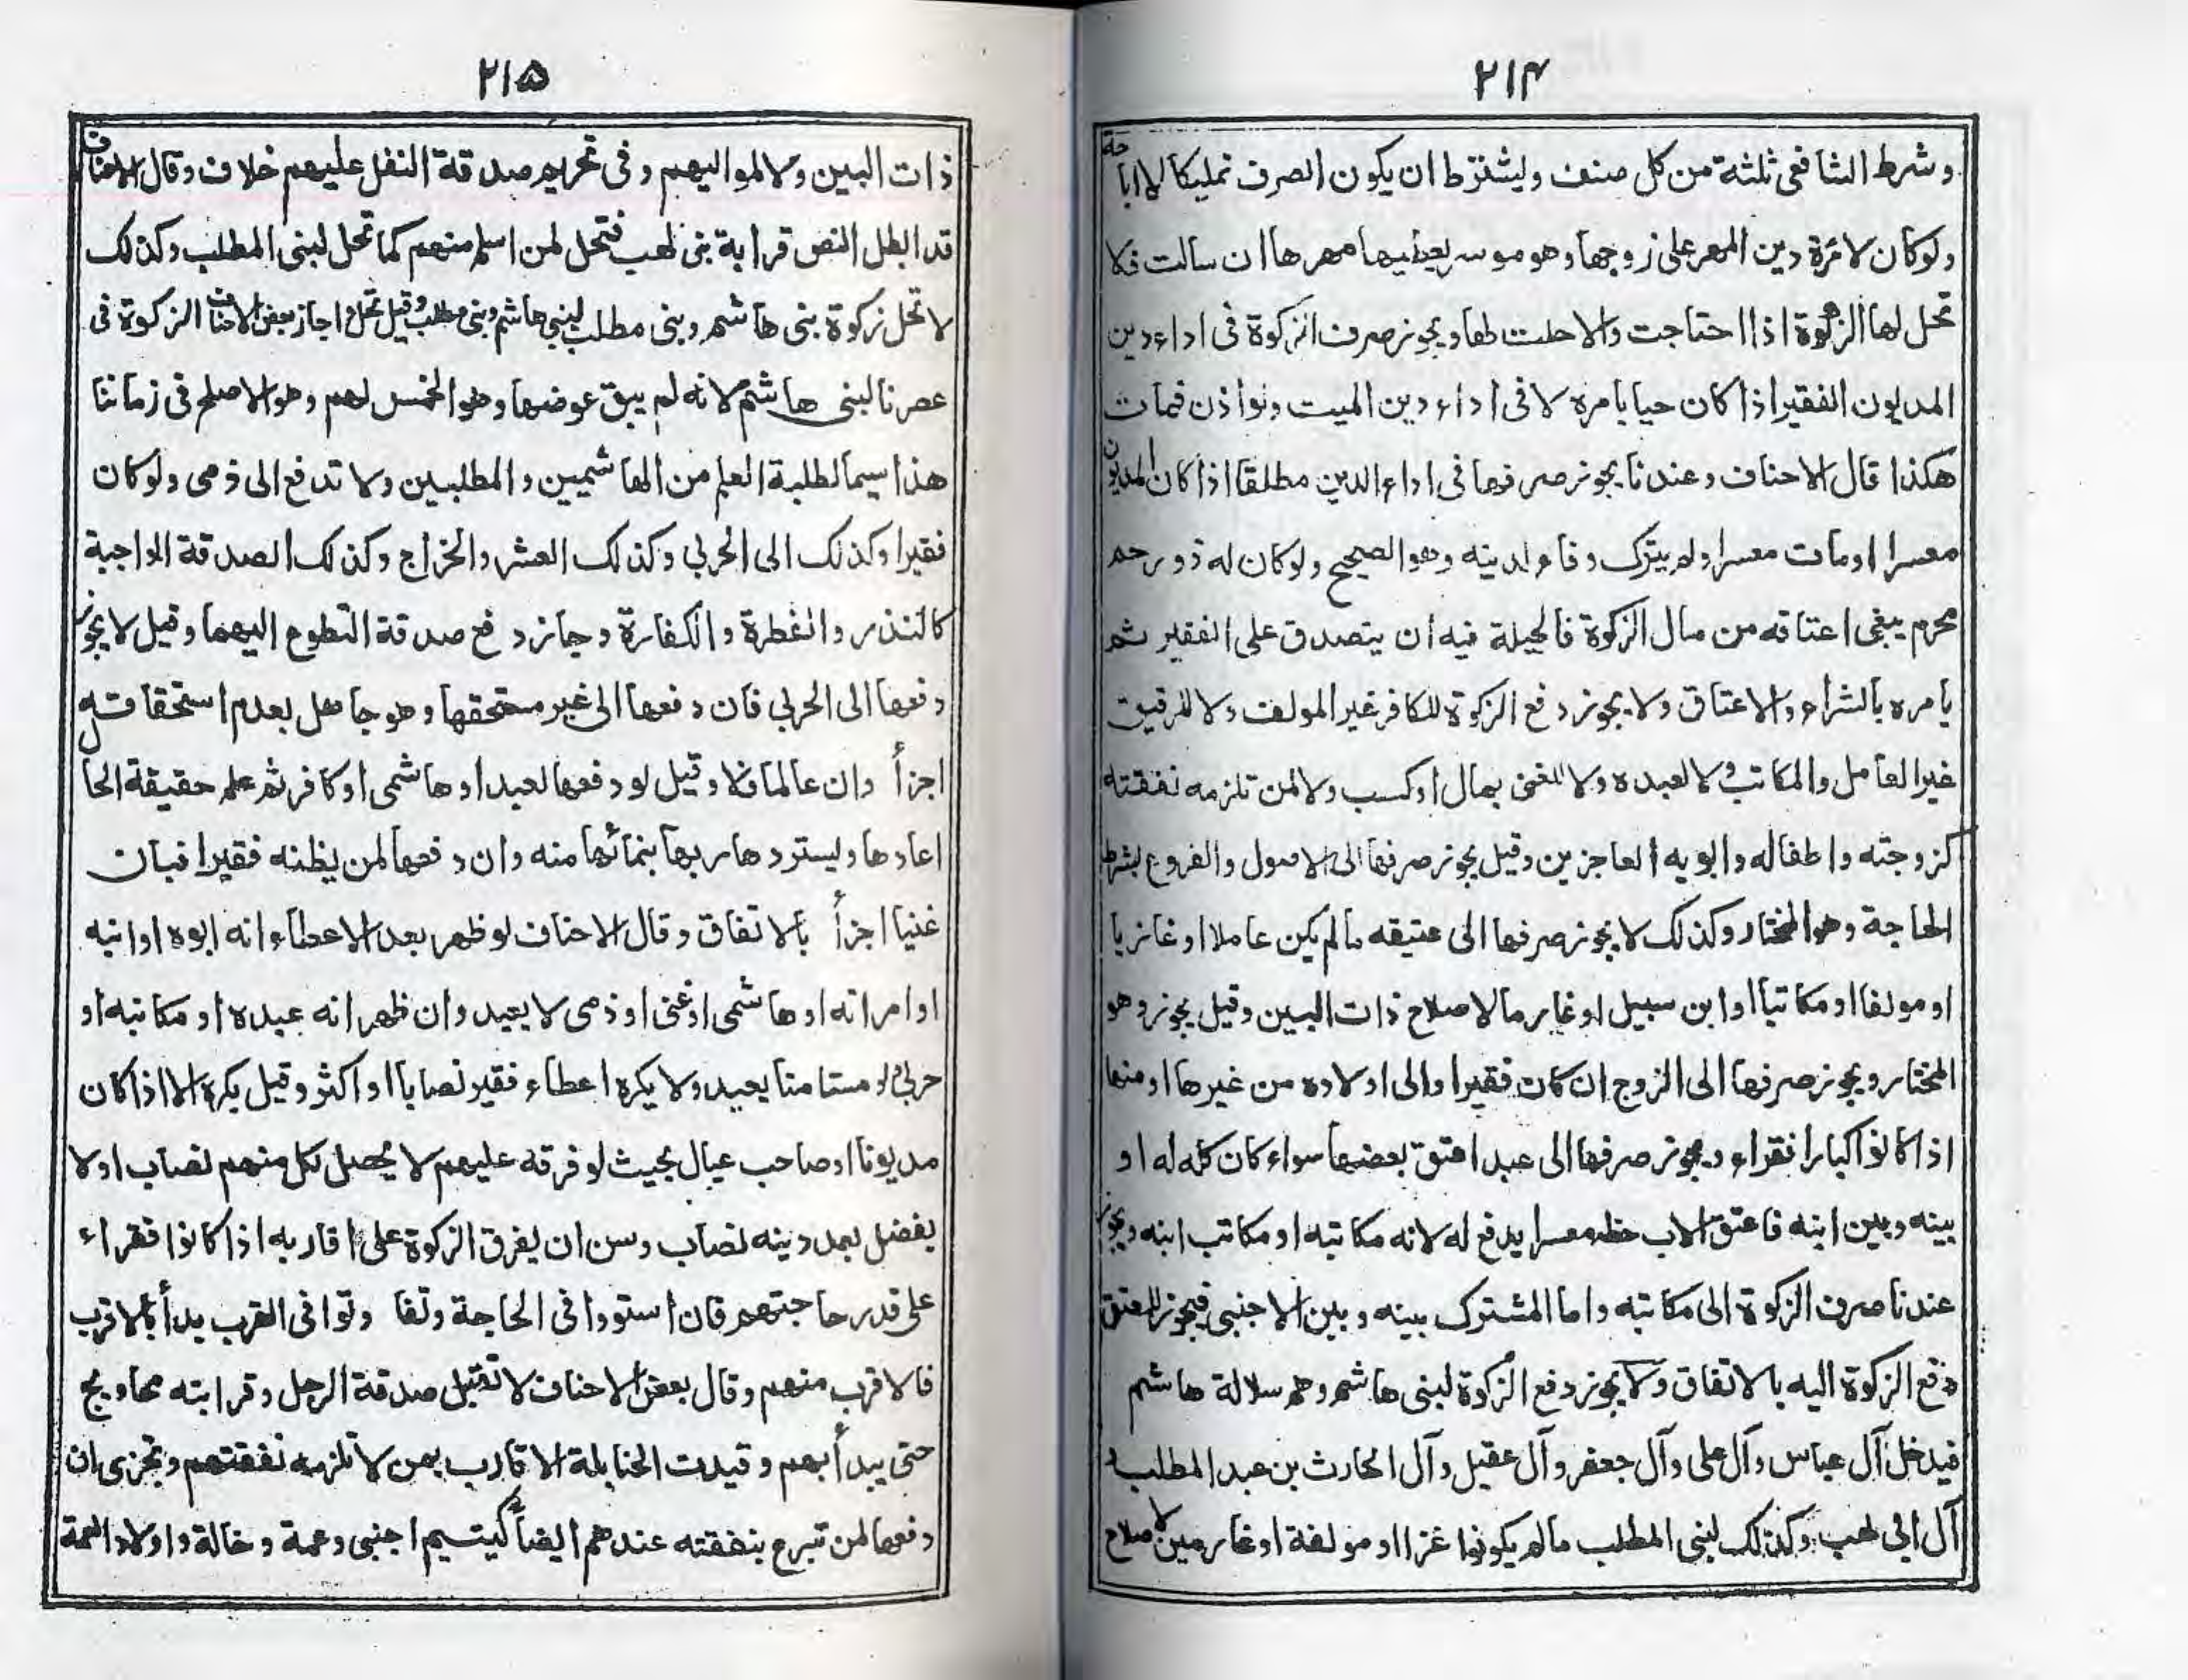 ۲۱۴
وشرط الشافعی ثلثة من کل صنف ولیشترط ان یکون الصرف تملیکا لا اباحة
ولو کان لامرءة دین المهر علی زوجها وهو موسر یعطیها مهرها ان سالت فلا
تحل لها الزکوة اذا احتاجت والا حلت لها ویجوز صرف الزکوة فی اداء دین
المدیون الفقیر اذا کان حیا بامره لا فی اداء دین المیت ولو اذن فمات
هکذا قال الاحناف وعندنا یجوز صرفها فی اداء الدین مطلقا اذا کان المدیون
معسرا اومات معسرا ولم یترک وفاء لدینه وهو الصحیح ولو کان له ذو رحم
محرم یبغی اعتاقه من مال الزکوة فالحیلة فیه ان یتصدق علی الفقیر ثم
یامره بالشراء والاعتاق ولا یجوز دفع الزکوة للکافر غیر المولف ولا للرقیق
غیر العامل والمکاتب ولا لعبده ولا للغنی بمال اوکسب ولا لمن تلزمه نفقته
کزوجته واطفاله وابویه العاجزین وقیل یجوز صرفها الی الاصول والفروع بشرط
الحاجة وهو المختار وکذلک لا یجوز صرفها الی عتیقه ما لم یکن عاملا او غازیا
او مولفا او مکاتبا او ابن سبیل او غارما لاصلاح ذات البین وقیل یجوز وهو
المختار ویجوز صرفها الی الزوج ان کان فقیرا والی اولاده من غیرها او منها
اذا کانوا کبارا فقراء ویجوز صرفها الی عبد اعتق بعضها سواء کان کله له او
بینه وبین ابنه فاعتق الاب حظه معسرا یدفع له لانه مکاتبه او مکاتب ابنه ویجوز
عندنا صرف الزکوة الی مکاتبه واما المشترک بینه وبین الاجنبی فیجوز للمعتق
دفع الزکوة الیه بالاتفاق ولا یجوز دفع الزکوة لبنی هاشم وهم سلالة هاشم
فیدخل آل عباس وآل علی وآل جعفر وآل عقیل وآل الحارث بن عبد المطلب و
آل ابی لهب وکذلک لبنی المطلب ما لم یکونوا غزا او مولفة او غارمین لاصلاح
۲۱۵
ذات البین ولا لموالیهم وفی تحریم صدقة النفل علیهم خلاف وقال الاحناف
قد ابطل النص قرابة بنی لهب فتحل لمن اسلم منهم کما تحل لبنی المطلب وکذلک
لا تحل زکوة بنی هاشم وبنی مطلب لبنی هاشم وبنی مطلب وقیل تحل واجاز بعض الاحناف الزکوة فی
عصرنا لبنی هاشم لانه لم یبق عوضها وهو الخمس لهم وهو الاصلح فی زماننا
هذا سیما لطلبة العلم من الهاشمیین والمطلبین ولا تدفع الی ذمی ولو کان
فقیرا وکذلک الی الحربی وکذلک العشر والخراج وکذلک الصدقة الواجبة
کالنذر والفطرة والکفارة وجاز دفع صدقة التطوع الیهما وقیل لا یجوز
دفعها الی الحربی فان دفعها الی غیر مستحقها وهو جاهل بعدم استحقاقه
اجزأ وان عالما فلا وقیل لو دفعها لعبد او هاشمی او کافر ثم علم حقیقة الحال
اعادها ولیسترد ها ربها بنمائها منه وان دفعها لمن یظنه فقیرا فبان
غنیا اجزأ بالاتفاق وقال الاحناف لو ظهر بعد الاعطاء انه ابوه او ابنه
او امراته او هاشمی او غنی او ذمی لا یعید وان ظهر انه عبده او مکاتبه او
حربی او مستامنا یعید ولا یکره اعطاء فقیر نصابا او اکثر وقیل یکره الا اذا کان
مدیونا او صاحب عیال بحیث لو فرقه علیهم لا یحصل لکل منهم نصاب او لا
یفضل بعد دینه نصاب وسن ان یفرق الزکوة علی اقاربه اذا کانوا فقراء
علی قدر حاجتهم فان استووا فی الحاجة وتفا وتوا فی القرب بدأ بالاقرب
فالاقرب منهم وقال بعض الاحناف لا تقبل صدقة الرجل وقرابته محاویج
حتی یبدأ بهم وقیدت الحنابلة الاقارب بمن لا تلزمه نفقتهم وتجزی ان
دفعها لمن تبرع بنفقته عندهم ایضا کیتیم اجنبی وعمة وخالة واولاد العمة